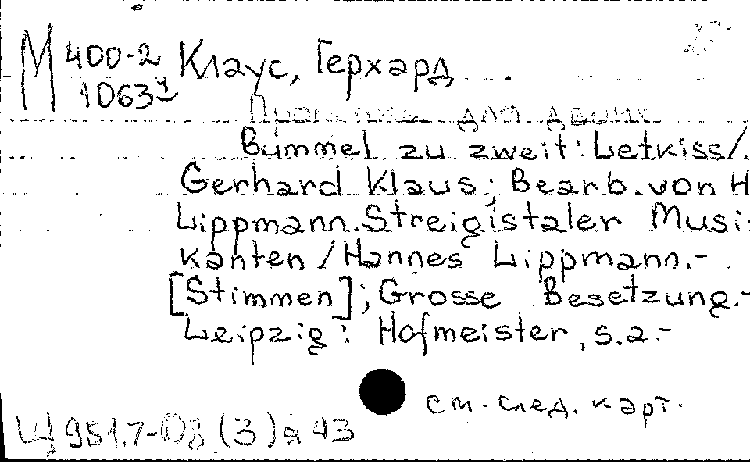 М 400-2 Клаус, Герхард
1063
для двоих
Bummel zu zweit: Letkiss/.
Gerhard Klaus; Bearb. von H
Lippmann. Streigistaler Musi-
kanten / Hannes Lippmann.-
[Stimmen]; Grosse Besetzung.-
Leipzig: Hofmeister, s.a.-
см. след. карт.
Щ 951.7-08 (3) я 43